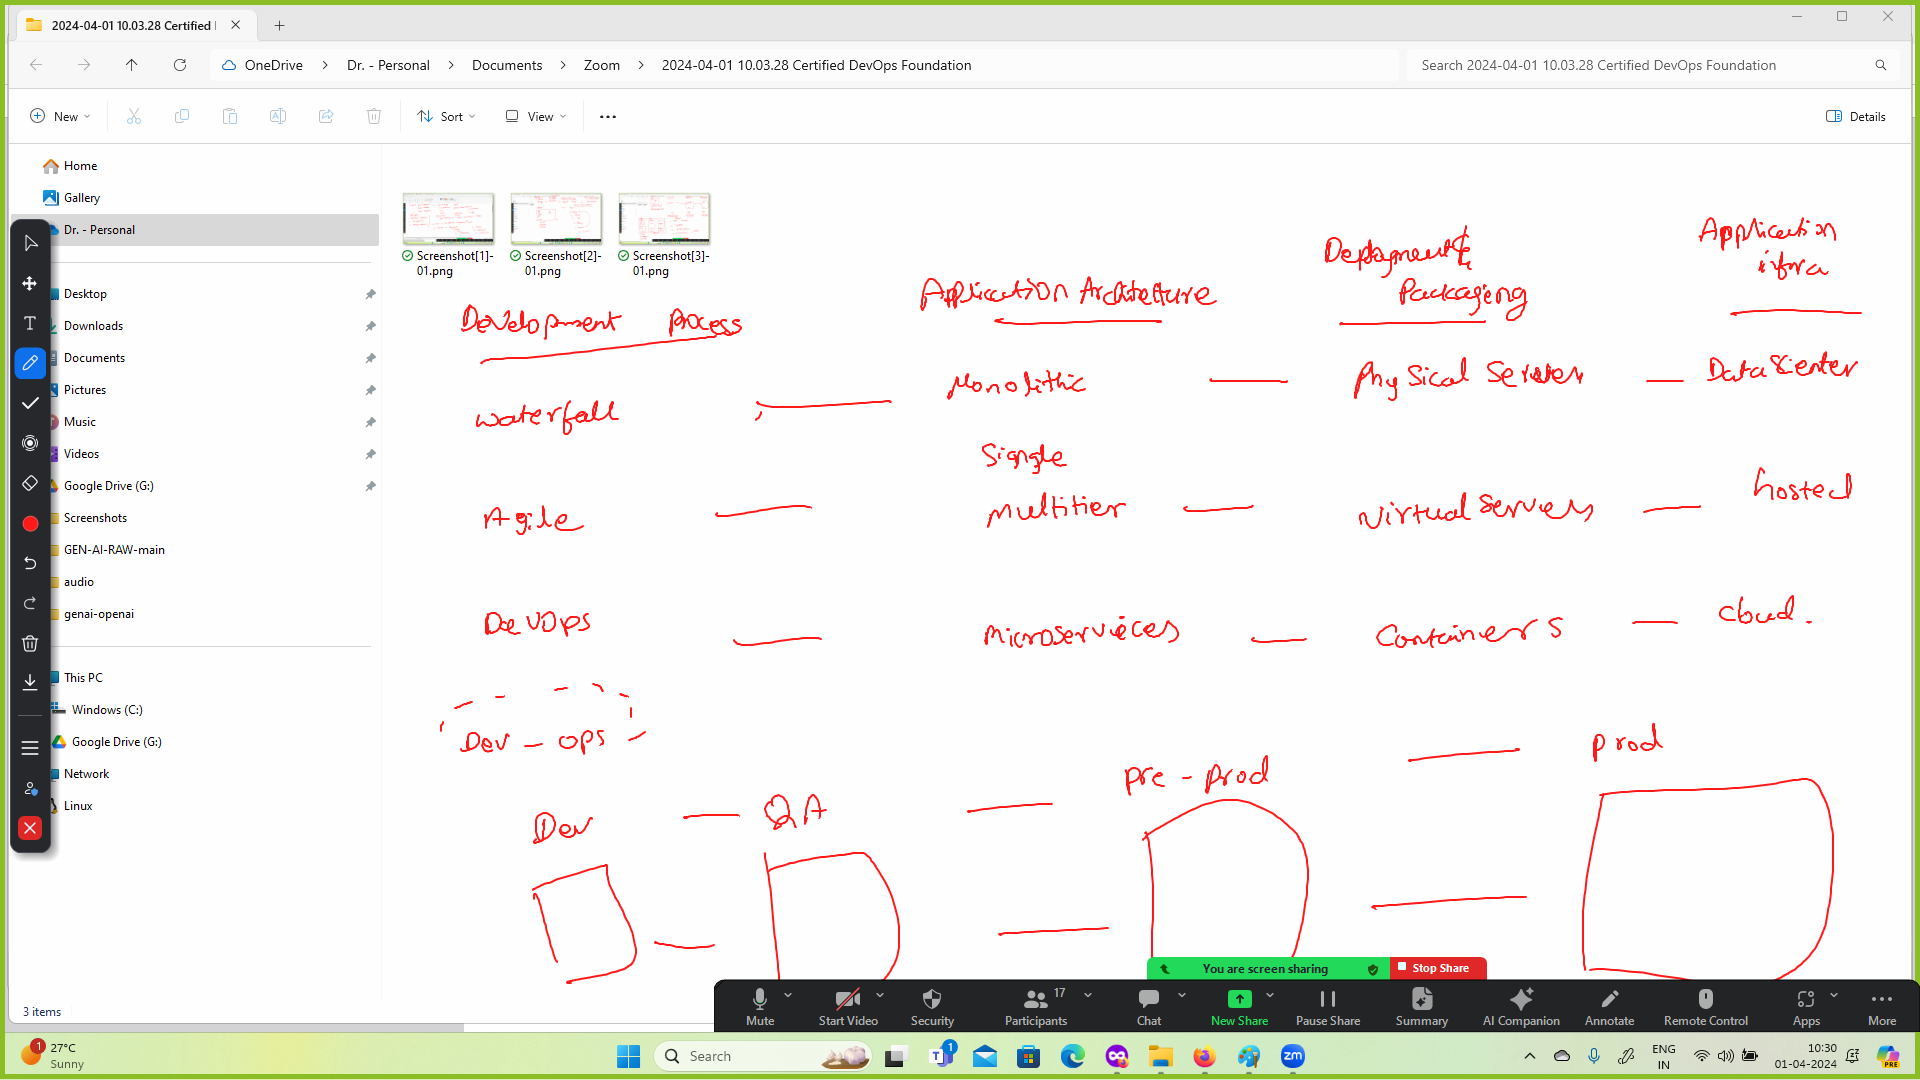 2024-04-01 10.03.28 Certified
OneDrive > Dr. - Personal > Documents > Zoom > 2024-04-01 10.03.28 Certified DevOps Foundation
Search 2024-04-01 10.03.28 Certified DevOps Foundation
New
Sort
View
Details
Home
Gallery
Dr. - Personal
Desktop
Downloads
Documents
Pictures
Music
Videos
Google Drive (G:)
Screenshots
GEN-AI-RAW-main
audio
genai-openai
This PC
Windows (C:)
Google Drive (G:)
Network
Linux
3 items
Screenshot[1]-
01.png
Screenshot[2]-
01.png
Screenshot[3]-
01.png
Development Process
Application Architecture
Deployment &
Packaging
Application
infra
Waterfall
Monolithic
Physical Server
Data Center
Single
Agile
Multitier
Virtual Servers
hosted
DevOps
Microservices
Containers
cloud.
Dev - ops
Dev
QA
Pre - prod
prod
You are screen sharing
Stop Share
Mute
Start Video
Security
Participants
17
Chat
New Share
Pause Share
Summary
AI Companion
Annotate
Remote Control
Apps
More
1
27°C
Sunny
Search
T
1
zm
ENG
IN
10:30
01-04-2024
PRE